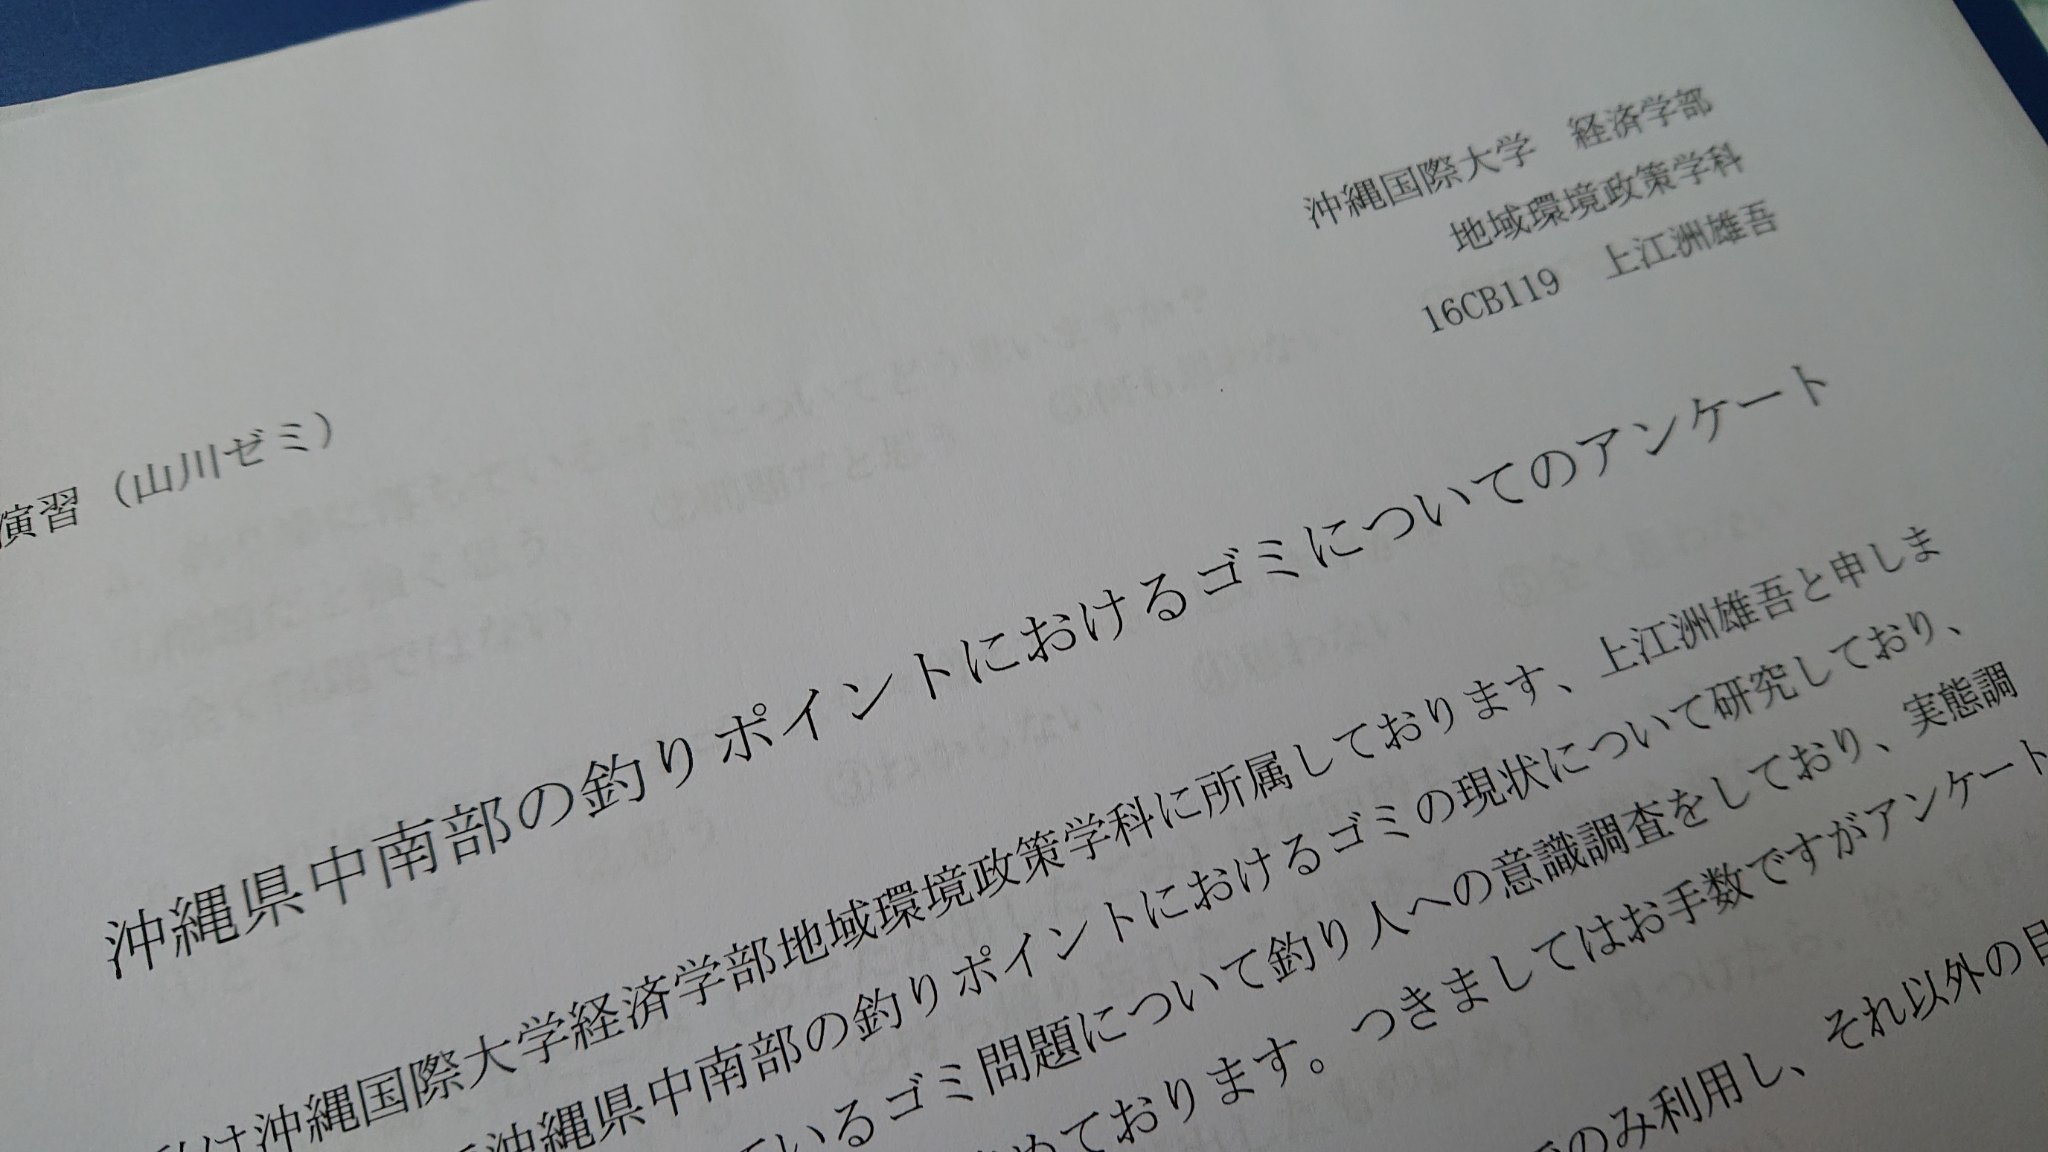 沖縄国際大学　経済学部
地域環境政策学科
16CB119　上江洲雄吾
演習（山川ゼミ）
沖縄県中南部の釣りポイントにおけるゴミについてのアンケート
は沖縄国際大学経済学部地域環境政策学科に所属しております、上江洲雄吾と申しま
沖縄県中南部の釣りポイントにおけるゴミの現状について研究しており、
いるゴミ問題について釣り人への意識調査をしており、実態調
めております。つきましてはお手数ですがアンケート
のみ利用し、それ以外の目